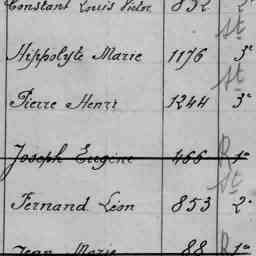 Constant Louis Victor 852 2e
St
Hippolyte Marie 1176 3e
St
Pierre Henri 1244 3e
Joseph Eugène 466 R 1e
St
Fernand Léon 853 2e
Jean Marie 88 R 1e